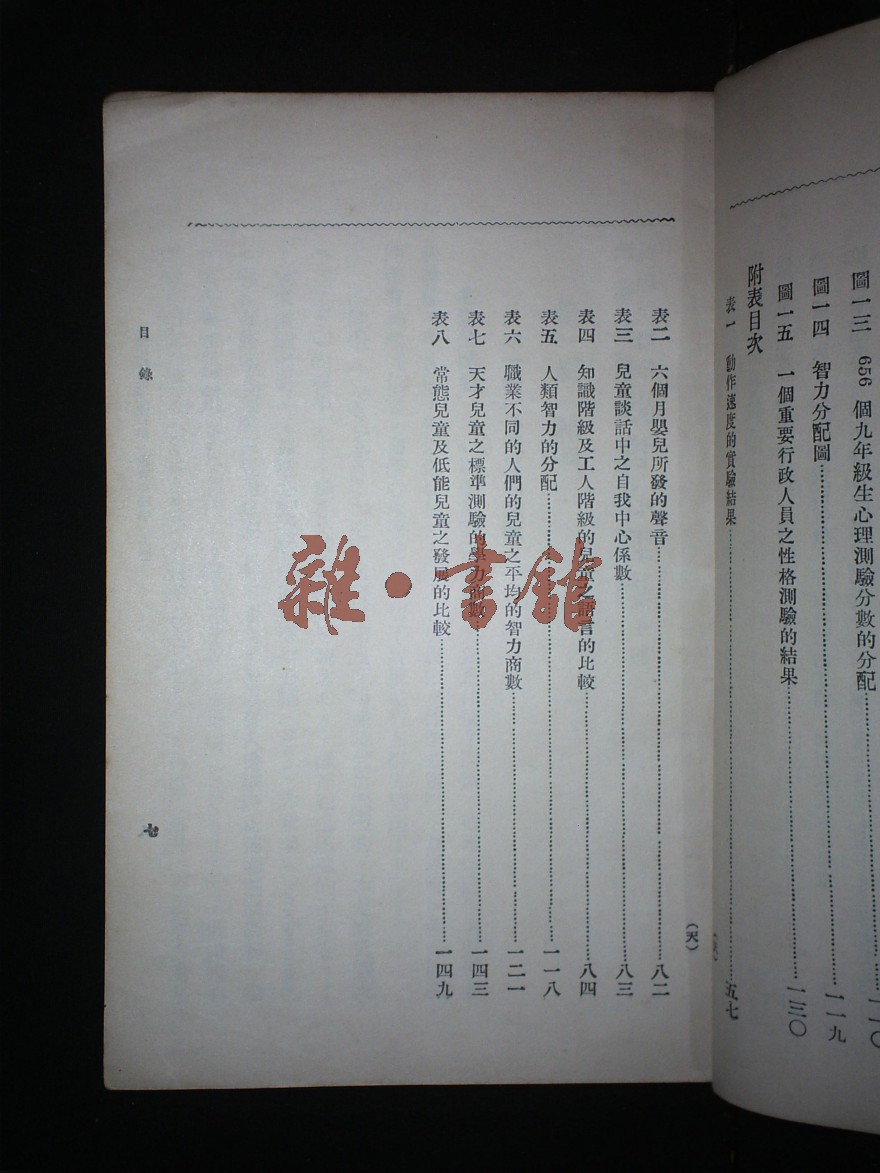 圖一三 656 個九年級生心理測驗分數的分配……一一〇
圖一四 智力分配圖……一一九
圖一五 一個重要行政人員之性格測驗的結果……一三〇
附表目次
表一 動作速度的實驗結果……五七
(天)
表二 六個月嬰兒所發的聲音……八二
表三 兒童談話中之自我中心係數……八三
表四 知識階級及工人階級的兒童之語言的比較……八四
表五 人類智力的分配……一一八
表六 職業不同的人們的兒童之平均的智力商數……一二一
表七 天才兒童之標準測驗的學力商數……一四三
表八 常態兒童及低能兒童之發展的比較……一四九
目錄
七
雜·書館